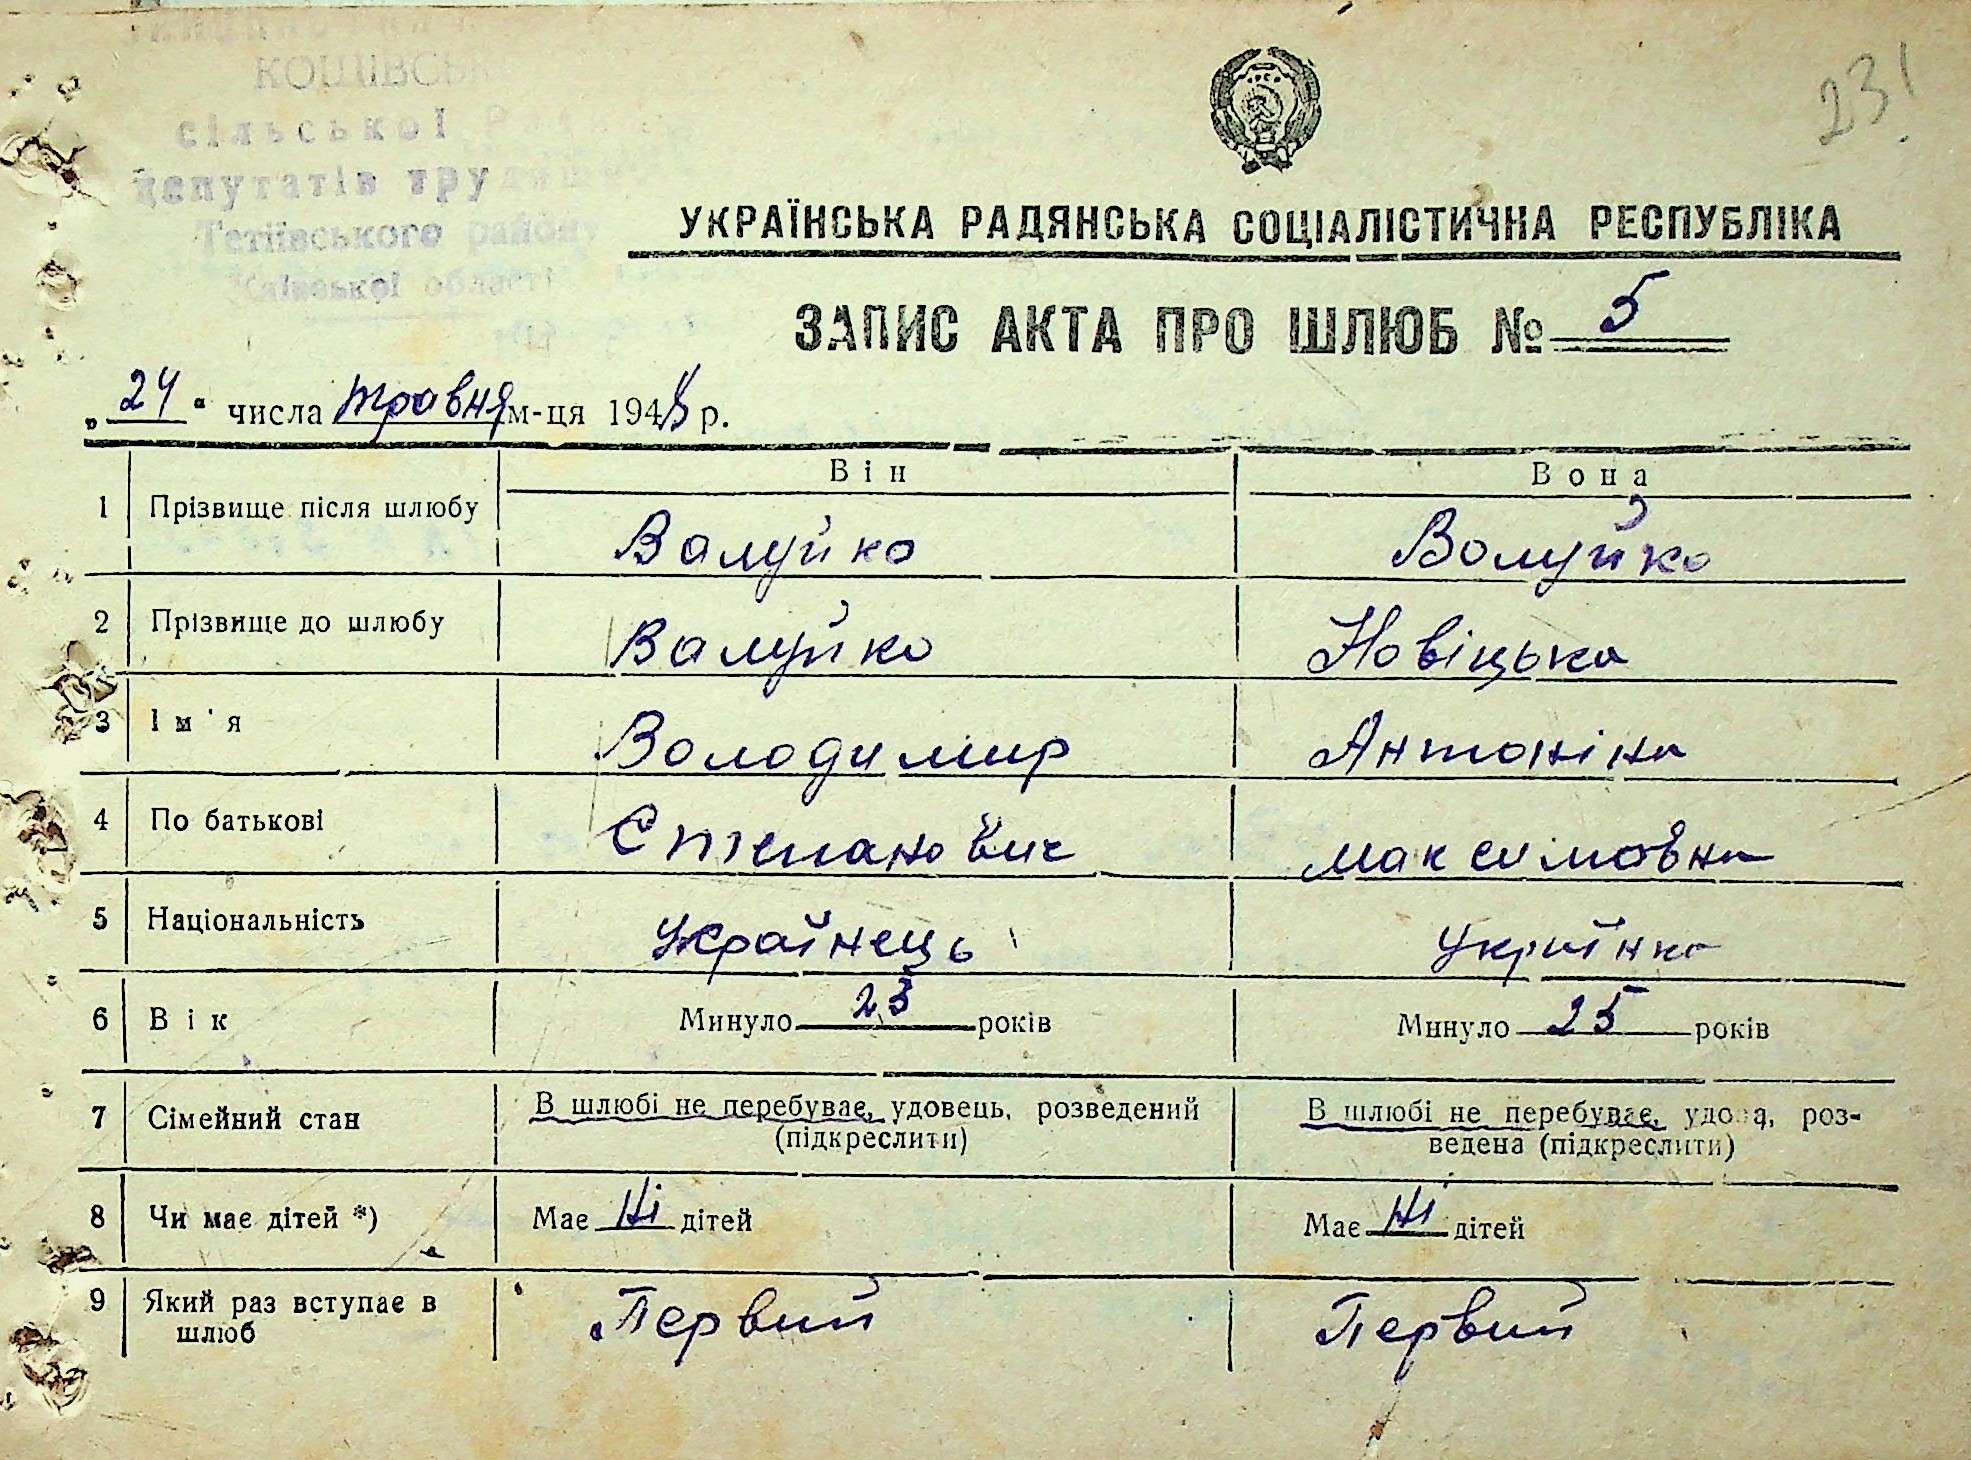 КОШІВСЬ
сільської Рад
депутатів трудящих
Тетіївського району
Київської області
231
УКРАЇНСЬКА РАДЯНСЬКА СОЦІАЛІСТИЧНА РЕСПУБЛІКА
ЗАПИС АКТА ПРО ШЛЮБ № 5
„24“ числа травня м-ця 1948 р.
Він Вона
1 Прізвище після шлюбу Валуйко Волуйко
2 Прізвище до шлюбу Валуйко Новіцька
3 Ім'я Володимир Антоніна
4 По батькові Степанович Максимовна
5 Національність Українець Українка
6 Вік Минуло 23 років Минуло 25 років
7 Сімейний стан В шлюбі не перебуває, удовець, розведений В шлюбі не перебуває, удова, роз-
(підкреслити) ведена (підкреслити)
8 Чи має дітей *) Має Ні дітей Має Ні дітей
9 Який раз вступає в Первий Первий
шлюб